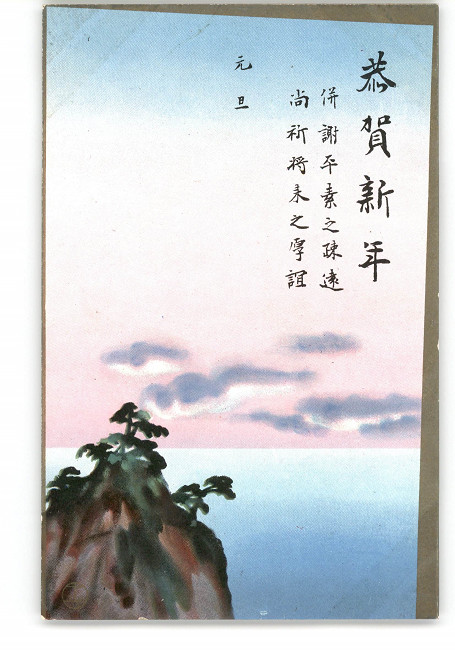 恭賀新年
併謝平素之疎遠
尚祈将来之厚誼
元旦